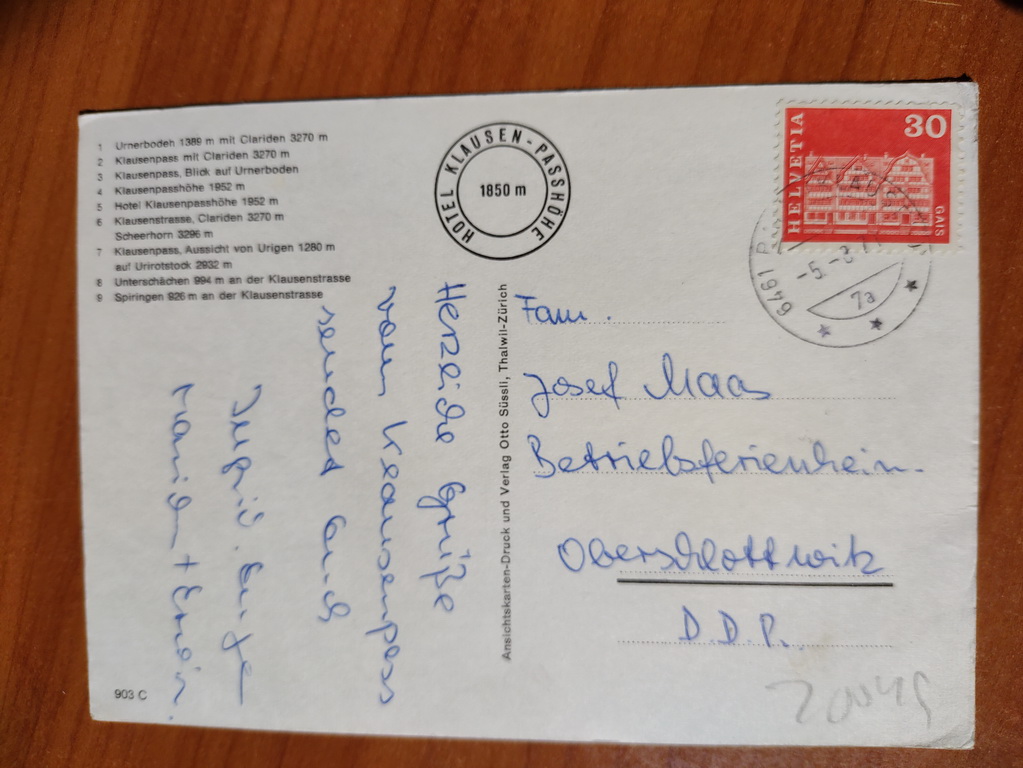 1 Urnerboden 1389 m mit Clariden 3270 m
2 Klausenpass mit Clariden 3270 m
3 Klausenpass, Blick auf Urnerboden
4 Klausenpasshöhe 1952 m
5 Hotel Klausenpasshöhe 1952 m
6 Klausenstrasse, Clariden 3270 m
Scheerhorn 3296 m
7 Klausenpass, Aussicht von Urigen 1280 m
auf Urirotstock 2932 m
8 Unterschächen 994 m an der Klausenstrasse
9 Spiringen 926 m an der Klausenstrasse
HOTEL KLAUSEN-PASSHÖHE
1850 m
HELVETIA
30
GAIS
6461
-5.-8.
7a
Herzliche Grüße
vom Klausenpass
sendet Euch
Ingrid.
+ Erwin.
903 C
Ansichtskarten-Druck und Verlag Otto Süssli, Thalwil-Zürich
Fam.
Josef Maas
Betriebsferienheim
Oberschlottwitz
D.D.R.